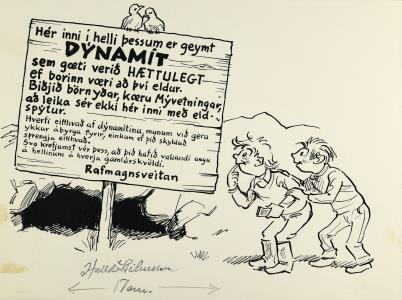 Hér inni í helli þessum er geymt
DÝNAMIT
sem gæti verið HÆTTULEGT
ef borinn væri að því eldur.
Biðjið börn yðar, kæru Mývetningar,
að leika sér ekki hér inni með eld-
spýtur.
Hverfi eitthvað af dýnamitinu, munum við gera
ykkur ábyrga fyrir, einkum ef þið skylduð
sprengja eitthvað.
Svo krefjumst vér þess, að þið hafið vakandi auga
á hellinum á hverju gamlárskvöldi.
Rafmagnsveitan
Halldór Pétursson
17 cm.